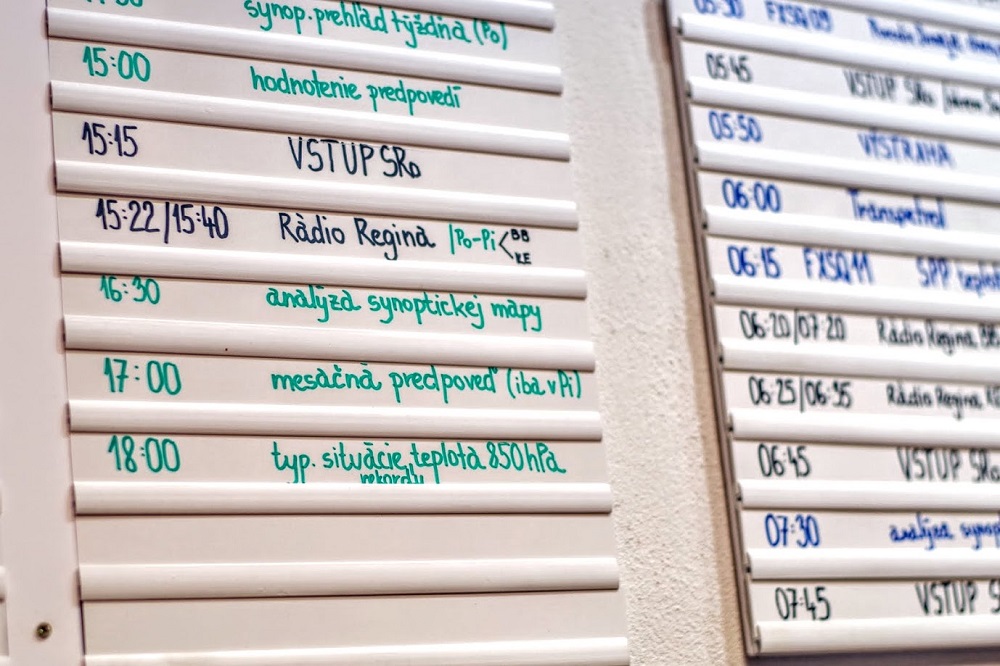 synop. prehľad týždňa (Po)
15:00 hodnotenie predpovedí
15:15 VSTUP SRo
15:22/15:40 Rádio Regina |Po-Pi < BB
KE
16:30 analýza synoptickej mapy
17:00 mesačná predpoveď (iba v Pi)
18:00 typ. situácie, teplota 850 hPa
rekordy
05:30 FXSQ09
05:45 VSTUP SRo
05:50 VÝSTRAHA
06:00 Transpetrol
06:15 FXSQ11 SPP
06:20/07:20 Rádio Regina BB
06:25/06:35 Rádio Regina
06:45 VSTUP SRo
07:30 analýza
07:45 VSTUP